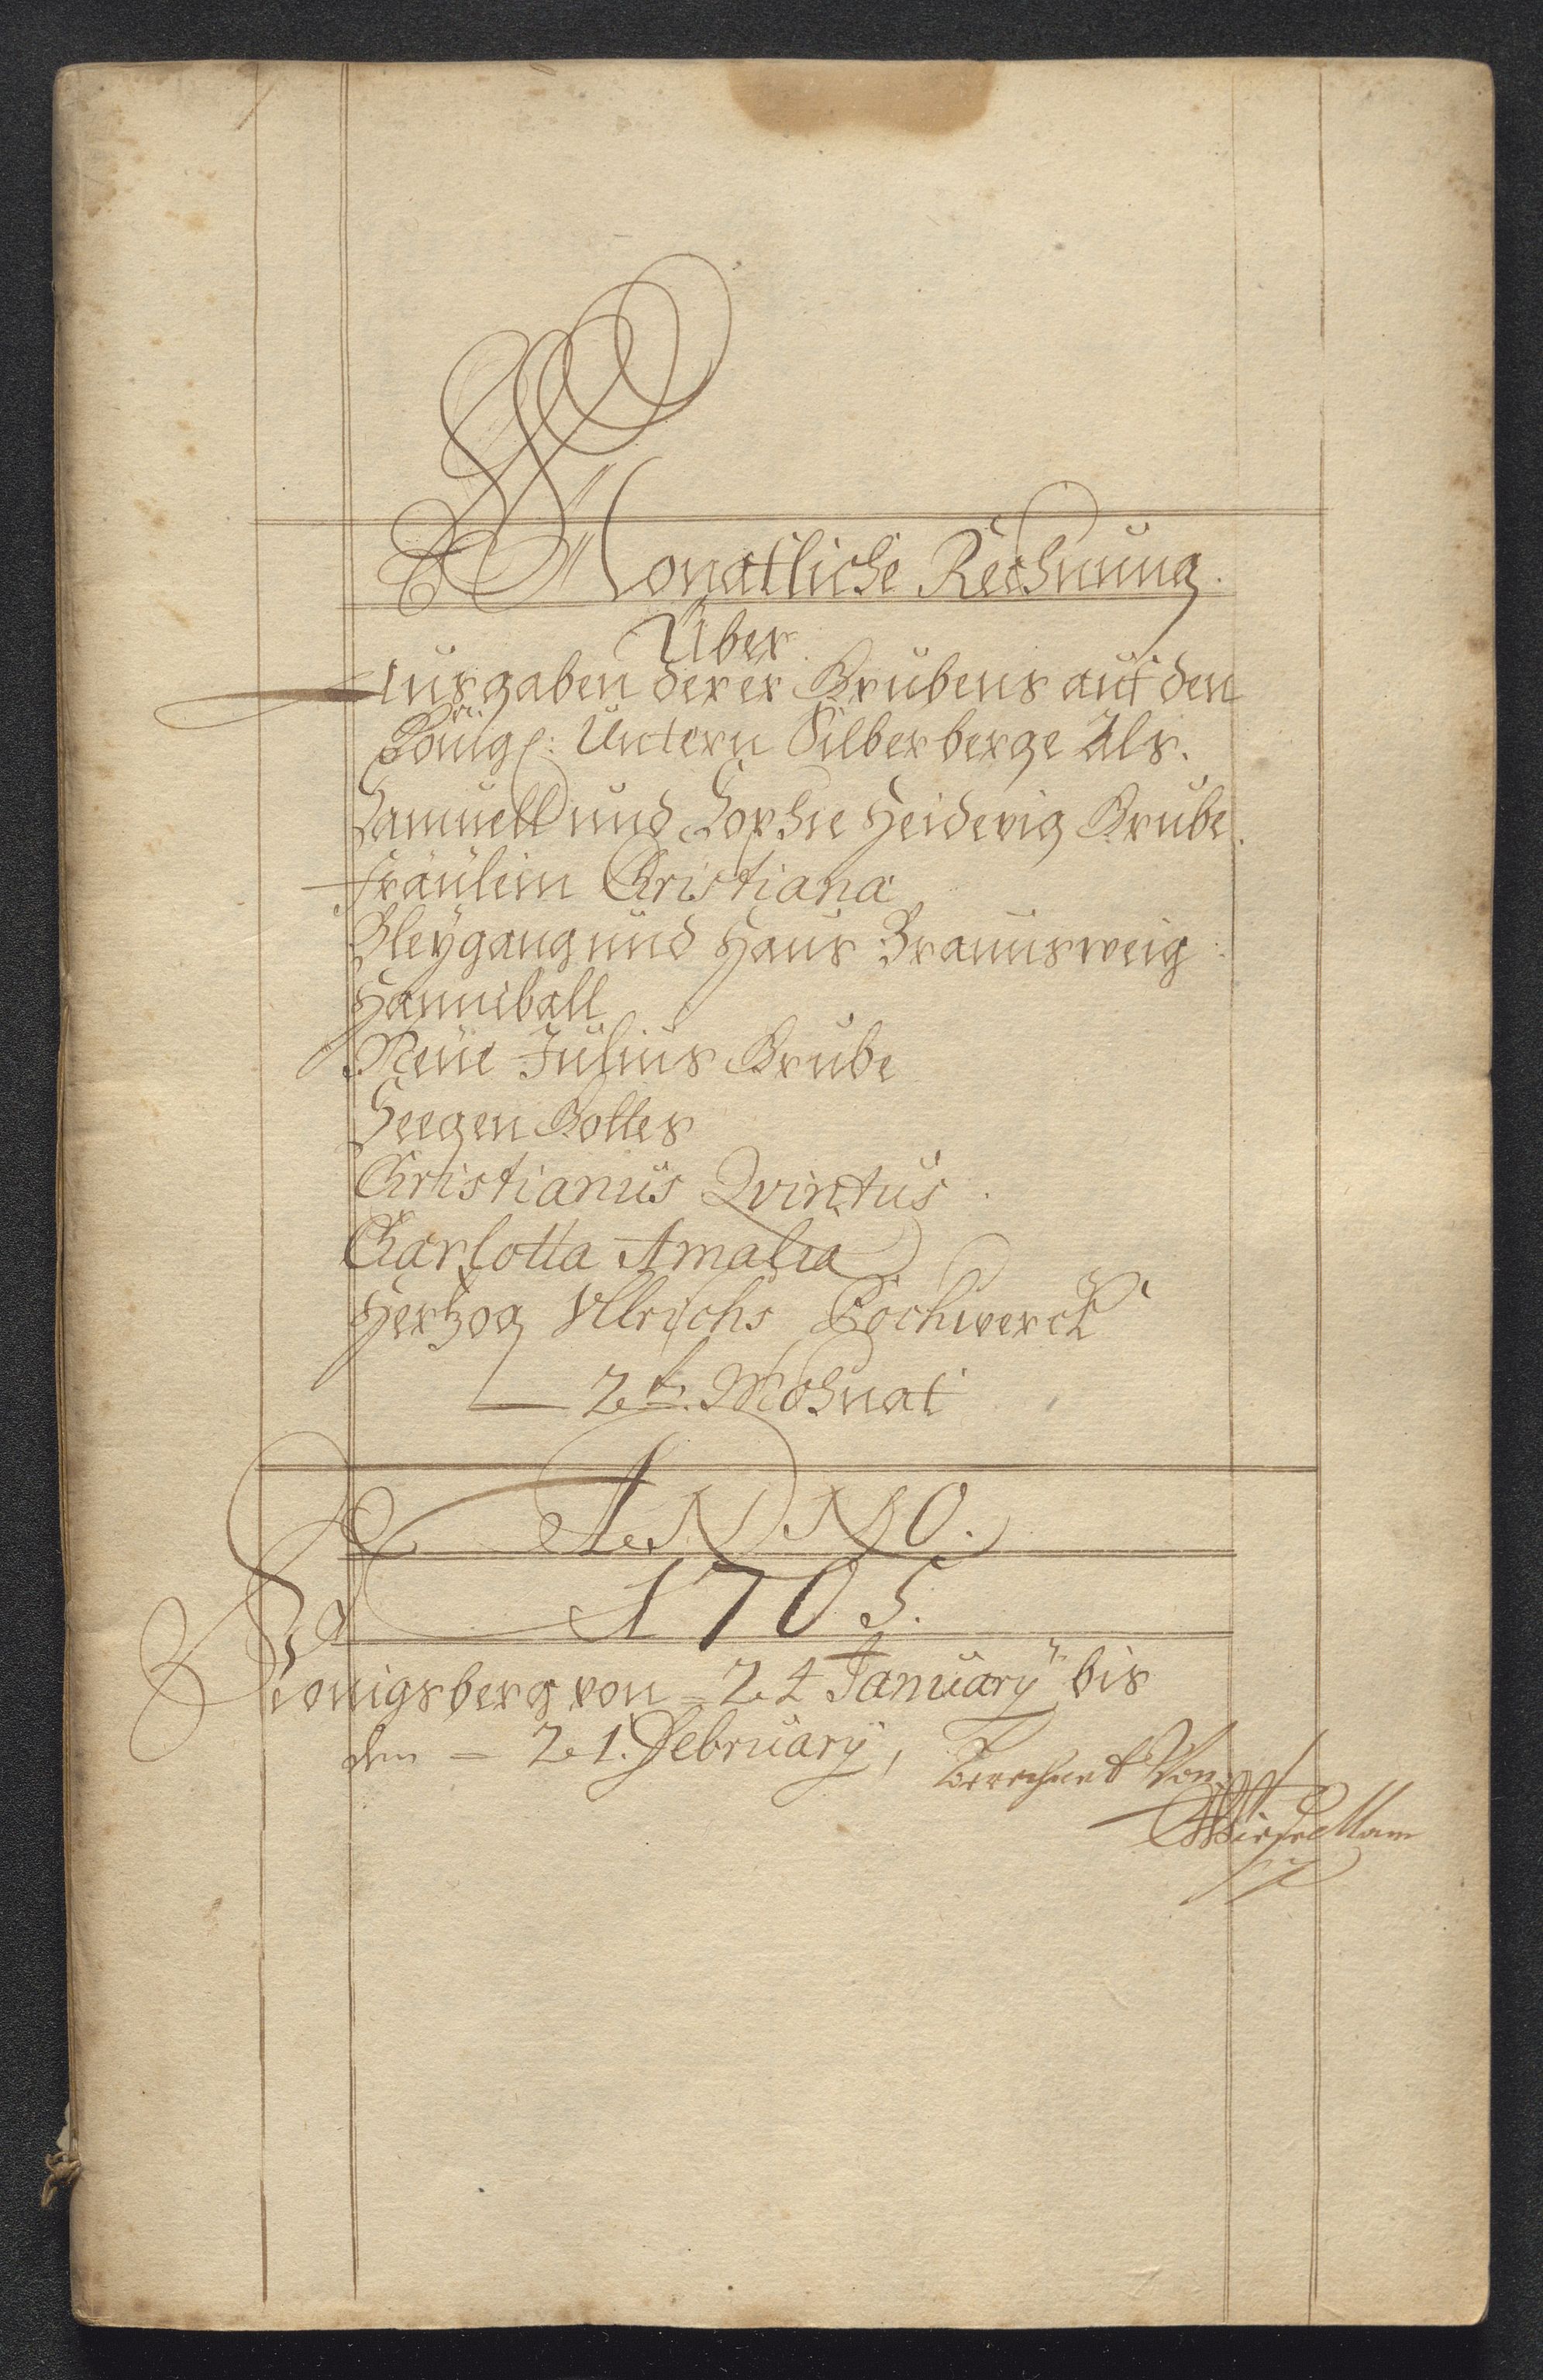 Monatliche Rechnung.
Über
Ausgaben derer Grubens auf den
Königl: Untern Silberberge Als.
Samuell und Sophie Heidevig Grube.
Fräulein Christiana
Bleygang und Haus Braunsweig
Hanniball
Neue Julius Grube
Seegen Gottes
Christianus Qvintus.
Charlotta Amalia
Hertzog Ullrichs Pochwerck
2te. Mohnat
ANNO.
1705.
Königsberg von = 24 January bis
den = 21. February,
berechnet Von